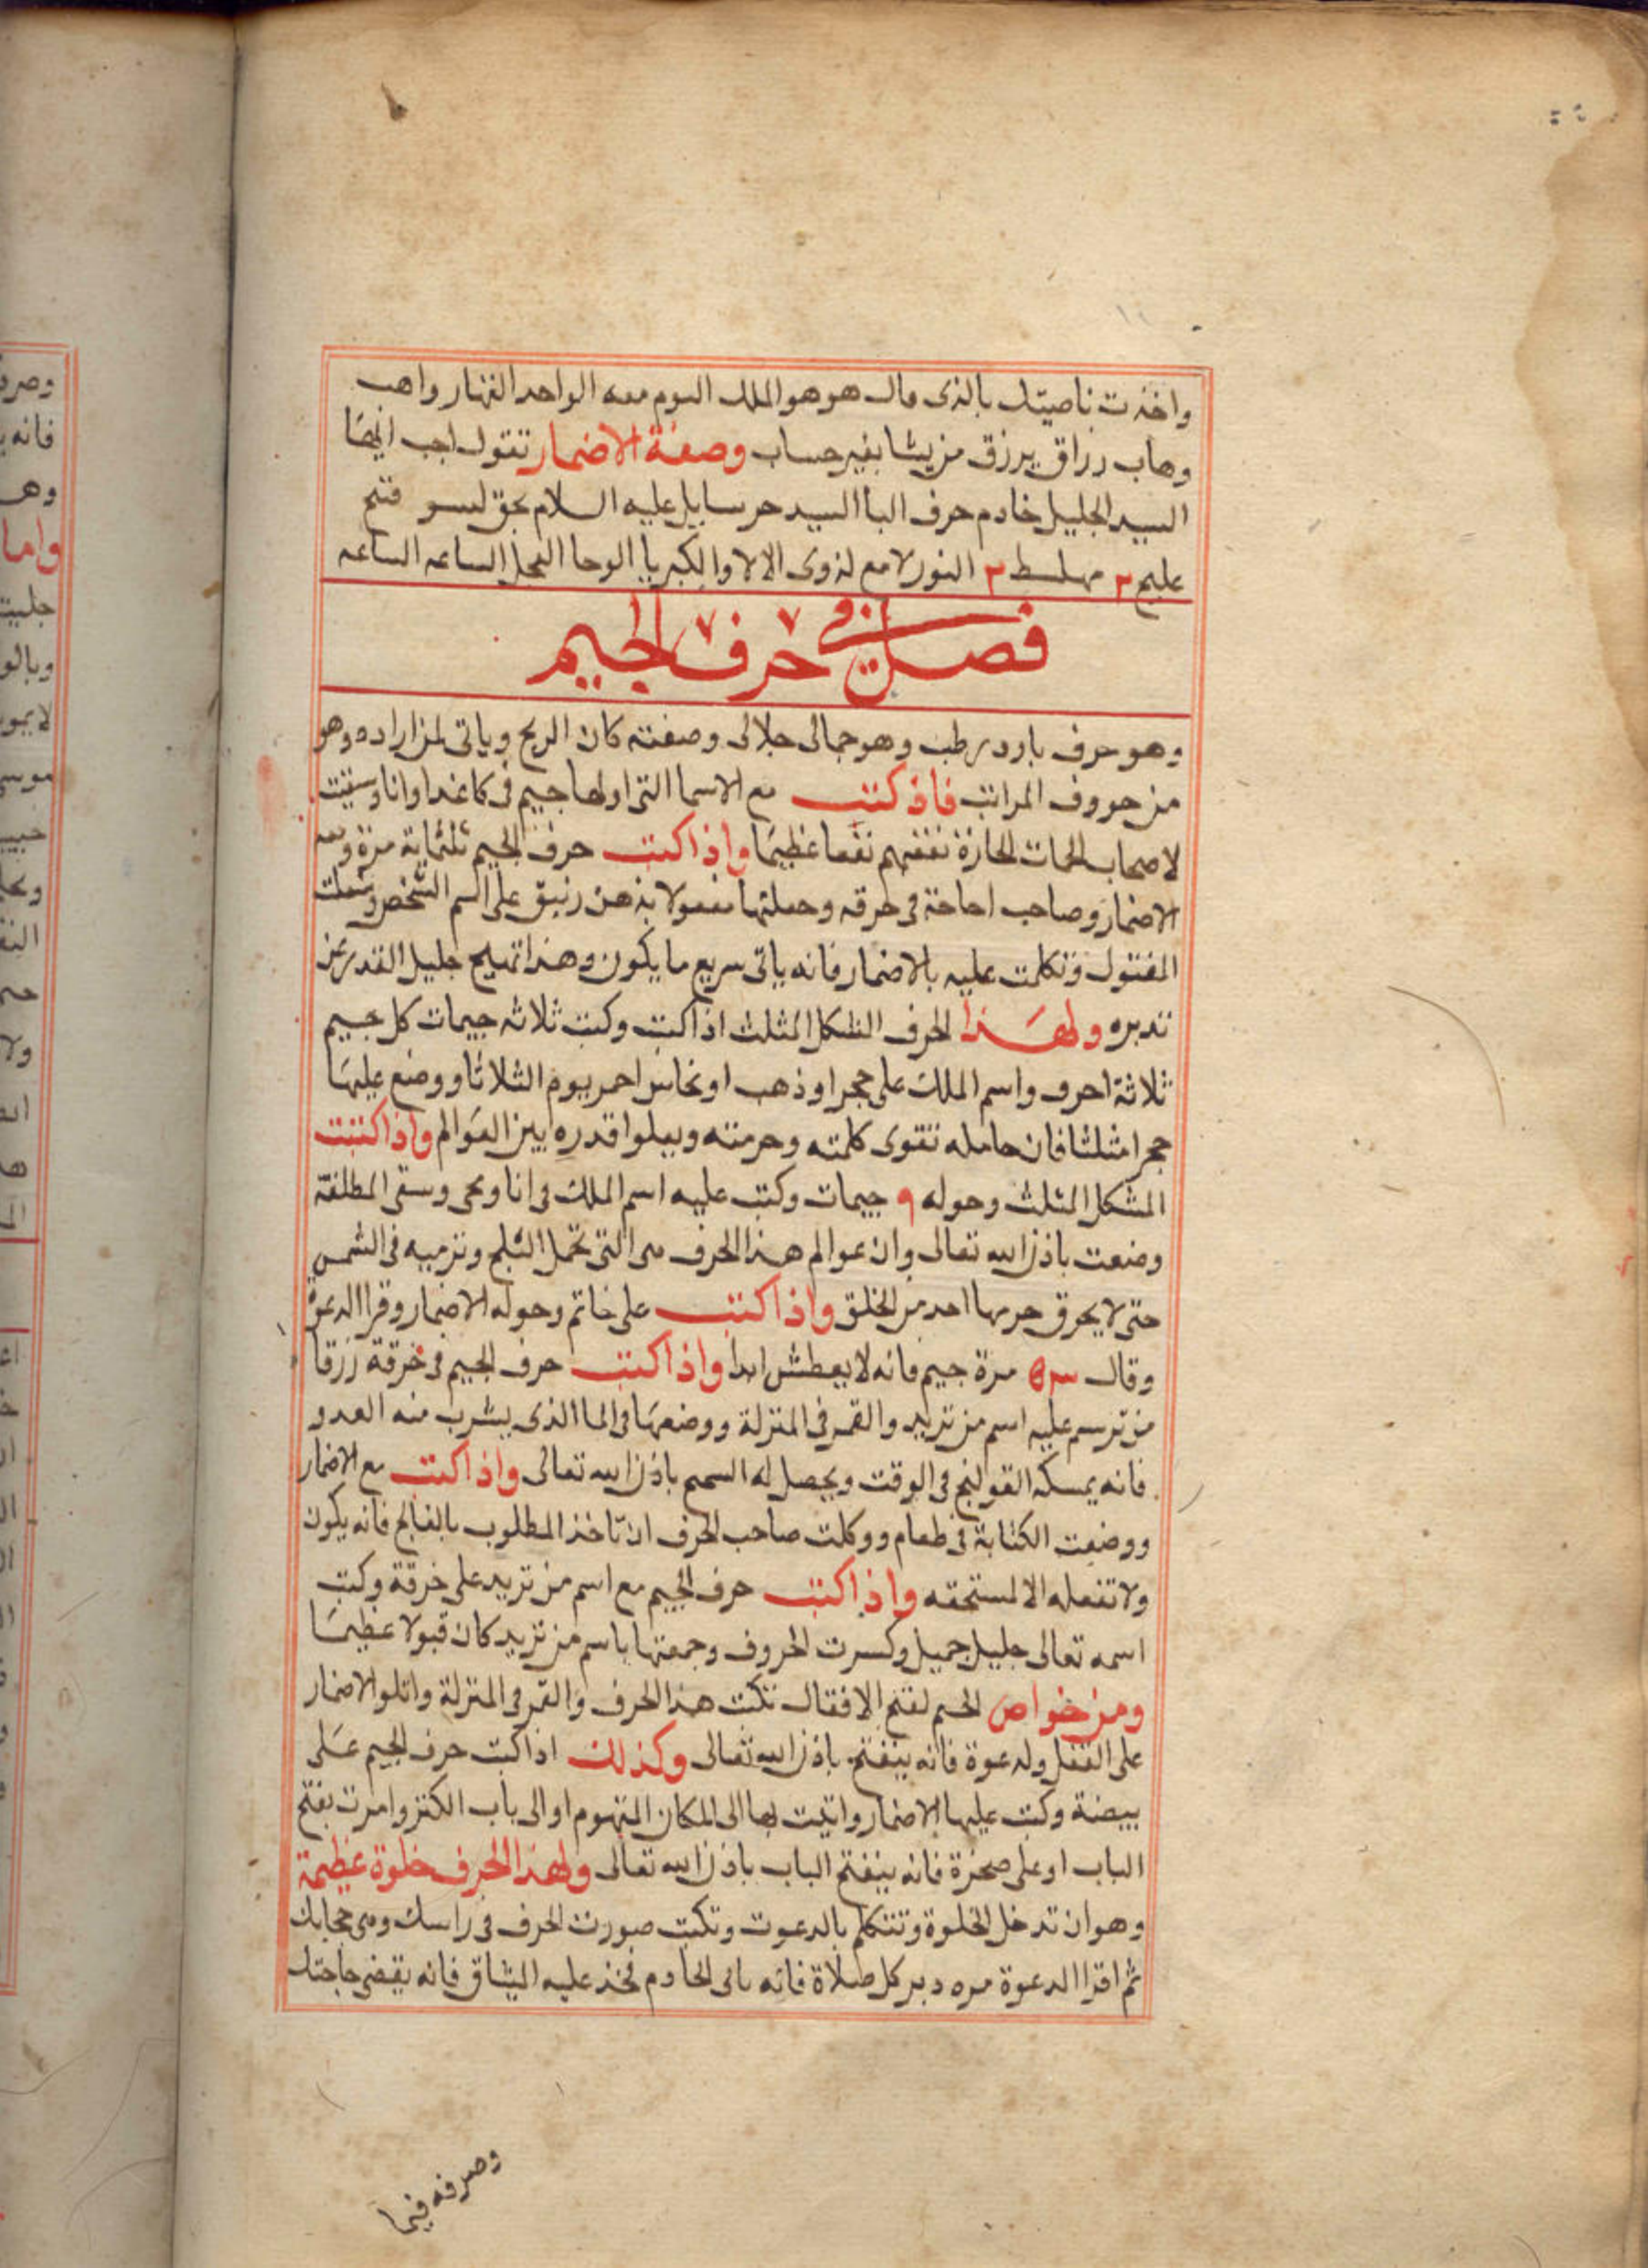 واخذت ناصيتك بالذى قال هو هو الملك اليوم معه الواحد القهار واهب
وهاب رزاق يرزق من يشا بغير حساب وصفة الاضمار تقول اجب ايها
السيد الجليل خادم حرف البا السيد حرسايل عليه السلام بحق
النور لامع لذوى الالا والكبريا الوحا العجل الساعه الساعه
فصل فى حرف الجيم
وهو حرف بارد رطب وهو جمالى جلالى وصفته كان الريح وياتى لمن اراده وهو
من حروف المراتب فاذ كتب مع الاسما التى اولها جيم فى كاغد اوانا وسقيت
لاصحاب الحمات الحارة نفعهم نفعا عظيما واذا كتب حرف الجيم ثلثماية مرة ومعه
الاضمار وصاحب احاحة فى خرقه وجعلتها بدهن زنبق على اسم الشخص وشعلت
المفتول وتكلمت عليه بالاضمار فانه ياتى سريع ما يكون وهذا تهييج جليل القدر
تدبره ولهذا الحرف الشكل المثلث اذا كتب وكتب ثلاثه جيمات كل جيم
ثلاثة احرف واسم الملك على حجر اوذهب اونحاس احمر يوم الثلاثا ووضع عليها
حجرا مثلثا فان حامله تقوى كلمته وحرمته ويعلوا قدره بين العوالم واذا كتبت
المشكل المثلث وحوله ٩ جيمات وكتب عليه اسم الملك فى انا ومحى وسقى المطلقة
وضعت باذن الله تعالى وان عوالم هذا الحرف هى التى تحمل الثلج وترميه فى الشمس
حتى لا يحرق حرها احد من الخلق واذا كتب على خاتم وحوله الاضمار وقرا الدعوة
وقال مرة جيم فانه لا يعطش ابدا واذا كتب حرف الجيم فى خرقة زرقا
من ترسم عليه اسم من تريد والقمر فى المنزلة ووضعها فى الما الذى يشرب منه العدو
فانه يمسكه القولنج فى الوقت ويحصل له السم باذن الله تعالى واذا كتب مع الاضمار
ووضعت الكتابة فى طعام ووكلت صاحب الحرف ان تاخذ المطلوب بالفالج فانه يكون
ولا تفعله الا لمستحقه واذا كتب حرف الجيم مع اسم من تريد على خرقة وكتب
اسمه تعالى جليل جميل وكسرت الحروف وجمعتها باسم من تريد كان قبولا عظيما
ومن خواص الجيم لفتح الاقفال تكتب هذا الحرف والقمر فى المنزلة واتلوا الاضمار
على القفل ولدعوة فانه ينفتح باذن الله تعالى وكذلك اذا كتبت حرف الجيم على
بيضة وكتب عليها الاضمار واتيت بها الى المكان المتهوم او الى باب الكنز وامرت بفتح
الباب او على صخرة فانه ينفتح الباب باذن الله تعالى ولهذا الحرف خلوة عظيمة
وهو ان تدخل الخلوة وتتكلم بالدعوت وتكتب صورت الحرف فى راسك وهى حجابك
ثم اقرا الدعوة مره دبر كل صلاة فانه ياتى الخادم فخذ عليه الميثاق فانه يقضى حاجتك
وصرفه فيما